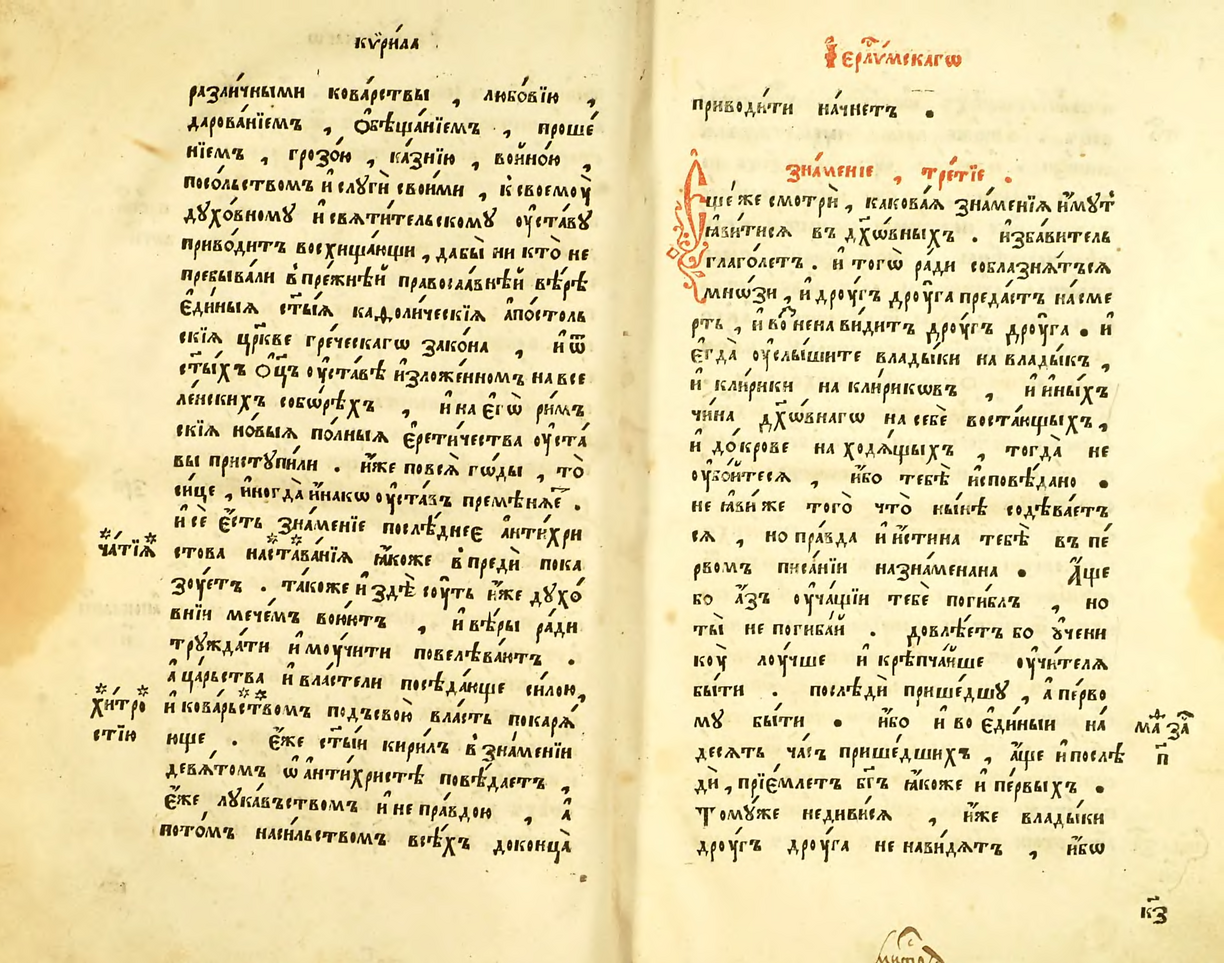 кѷри́ла
разли́чными кова́рствы , любо́вїю ,
дарова́нїемъ , Ѻбѣща́нїемъ , проше́
нїемъ , грозо́ю , ка́знїю , войно́ю ,
посо́льствомъ и҆ слуги̑ свои́ми , к своемоу̀
дꙋхо́вномꙋ и҆ святи́тельскомꙋ оу҆ста́вꙋ
приво́дитъ восхища́ющи , дабы̀ ни кто̀ не
пребыва́ли в̾ пре́жнѣй правосла́внѣй вѣ́рѣ
є҆ди́ныѧ ст҃ы́ѧ каѳоли́ческїѧ а҆по́столь
скїѧ цр҃кве гре́ческагѡ зако́на , и҆ ѿ
ст҃ы́хъ Ѻ҆ц҃ъ оу҆ста́вѣ и҆зложе́нномъ на все
ле́нскихъ собѡ́рѣхъ , и҆ на є҆гѡ̀ ри́мъ
скїѧ но́выѧ по́лныѧ є҆рети́чества оу҆ста́
вы приступи́ли . и҆́же повсѧ̀ го́ды , то̀
сице , и҆ногда̀ и҆на́кѡ оу҆ста́въ премѣнѧ́є .
и҆ сѐ є҆́сть зна́менїе послѣ́днее а҆нтихри́
ча́тїѧ
стова наста́ванїѧ ꙗ҆́коже в̾предѝ пока
зꙋ́етъ . та́коже и҆ здѣ̀ соу́ть и҆́же дꙋхо́
внїи мече́мъ вою́ютъ , и҆ вѣ́ры ра́ди
трꙋжда́ти и҆ моу́чити повелѣва́ютъ .
а҆ ца́рьства и҆ вла́стели посѣда́юще си́лою,
хи́тро
и҆ кова́рьствомъ подъсвою̀ вла́сть покарѧ́
стїю
юще . є҆́же ст҃ы́й кири́лъ в̾ зна́менїи
девѧ́томъ ѡ҆ а҆нти́христѣ повѣ́даетъ ,
є҆́же лꙋка́въствомъ и҆ не пра́вдою , а҆
пото́мъ наси́льствомъ всѣ́хъ доконца̀
І҆ерⷭ҇ли́мскагѡ
приводи́ти на́чнетъ .
зна́менїе , тре́тїе .
Є҆ще́ же смотрѝ , какова́ѧ зна́менїѧ и҆́мꙋт̾
ꙗ҆ви́тисѧ въ дꙋ҃хѡ́вныхъ . и҆зба́витель
глаго́летъ . и҆ тогѡ̀ ра́ди соблазнѧ́тъсѧ
мнѡ́зи , и҆ дрꙋ́гъ дрꙋ́га преда́стъ на сме
рть , и҆ во́знена видитъ дрꙋ́гъ дрꙋ́га . и҆
є҆гда̀ оу҆слы́шите влады́ки на влады́къ ,
и҆ кли́рики на кли́рикѡвъ , и҆ и҆ны́хъ
чи́на дꙋ҃хѡ́внагѡ на себѐ воста́ющыхъ,
и҆ до́крове на ходѧ́щыхъ , тогда̀ не
оу҆бо́йтесѧ , и҆́бо тебѣ̀ и҆сповѣ́дано .
не ꙗ҆ви́ же того̀ что̀ ны́нѣ содѣ́ваетъ
сѧ , но пра́вда и҆ и҆́стина тебѣ̀ въ пе́
рвомъ писа́нїи назна́менана . А҆́ще
бо а҆́зъ оу҆ча́щїи тебѐ поги́блъ , но
ты̀ не погиба́й . довлѣ́етъ бо оу҆чени
коу̀ лоу́чше и҆ крѣпча́йше оу҆чи́телѧ
бы́ти . послѣдѝ прише́дшꙋ , а҆ пе́рво
мꙋ бы́ти . и҆́бо и҆ во є҆ди́ныи на́
ма за҃
десѧть ча́съ прише́дшихъ , а҆́ще и҆ послѣ
п҃
дѝ , прїе́млетъ бг҃ъ ꙗ҆́коже и҆ пе́рвыхъ .
Томꙋ́же недиви́сѧ , и҆́же влады́ки
дрꙋ́гъ дрꙋ́га не нави́дѧтъ , и҆́бѡ
к҃з